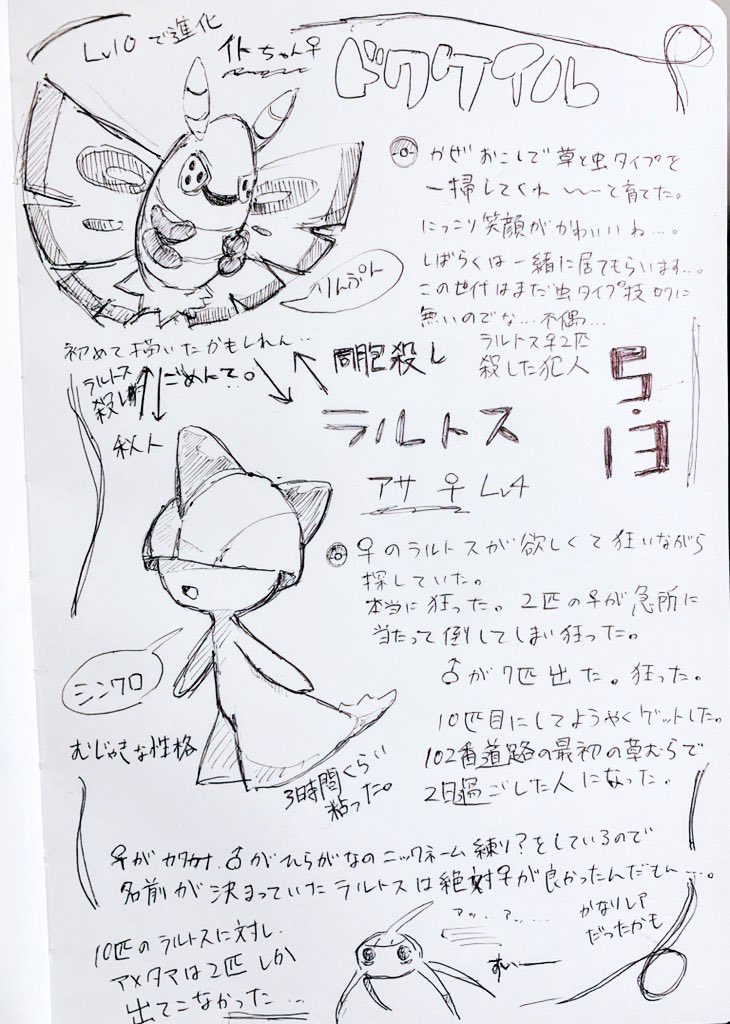 Lv10で進化
ドクケイル
かぜおこしで草と虫タイプを
一掃してくれ〜〜と育てた。
にっこり笑顔がかわいいね…。
しばらくは一緒に居てもらいます…。
この世代はまだ虫タイプ技ロクに
無いのでな…不偶…
りんぷん
初めて描いたかもしれん…
ラルトス♀2匹
殺した犯人
ラルトス
殺し
ごめんて。
同胞殺し
5.13
ラルトス
アサ ♀ Lv4
♀のラルトスが欲しくて狂いながら
探していた。
本当に狂った。2匹の♀が急所に
当たって倒してしまい狂った。
♂が7匹出た。狂った。
シンクロ
10匹目にしてようやくゲットした。
むじゃきな性格
102番道路の最初の草むらで
2日過ごした人になった。
3時間くらい
粘った。
♀がカタカナ、♂がひらがなのニックネーム練り?をしているので
名前が決まっていたラルトスは絶対♀が良かったんだもん…。
10匹のラルトスに対し、
アメタマは2匹しか
出てこなかった…
アッ…アッ…
すいー
かなりレア
だったかも